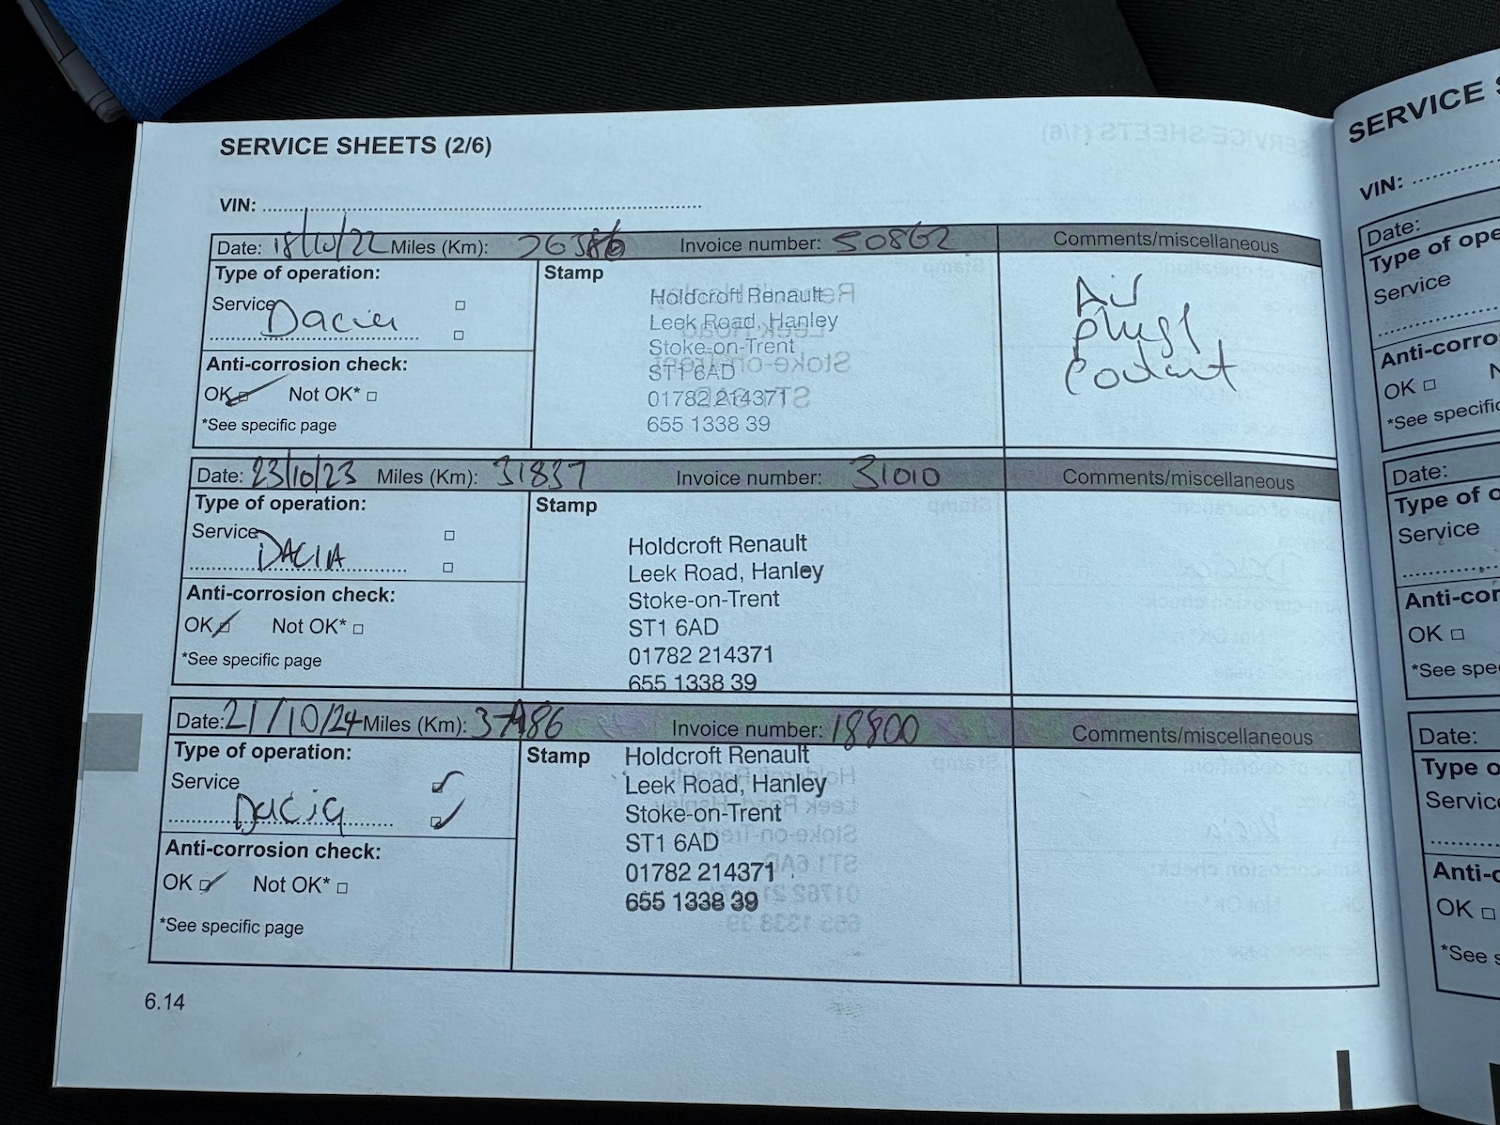 SERVICE SHEETS (2/6)
VIN:
Date: 18/10/22 Miles (Km): Invoice number: 50862 Comments/miscellaneous
Type of operation:
Service
Dacia
Anti-corrosion check:
OK Not OK*
*See specific page
Stamp
Holdcroft Renault
Leek Road, Hanley
Stoke-on-Trent
ST1 6AD
01782 214371
655 1338 39
Air
plugs
Coolant
Date: 23/10/23 Miles (Km): 31837 Invoice number: 31010 Comments/miscellaneous
Type of operation:
Service
DACIA
Anti-corrosion check:
OK Not OK*
*See specific page
Stamp
Holdcroft Renault
Leek Road, Hanley
Stoke-on-Trent
ST1 6AD
01782 214371
655 1338 39
Date: 21/10/24 Miles (Km): Invoice number: 18800 Comments/miscellaneous
Type of operation:
Service
Dacia
Anti-corrosion check:
OK Not OK*
*See specific page
Stamp
Holdcroft Renault
Leek Road, Hanley
Stoke-on-Trent
ST1 6AD
01782 214371
655 1338 39
6.14
SERVICE
VIN:
Date:
Type of ope
Service
Anti-corro
OK
*See specific
Date:
Type of o
Service
Anti-cor
OK
*See spe
Date:
Type o
Servic
Anti-c
OK
*See s